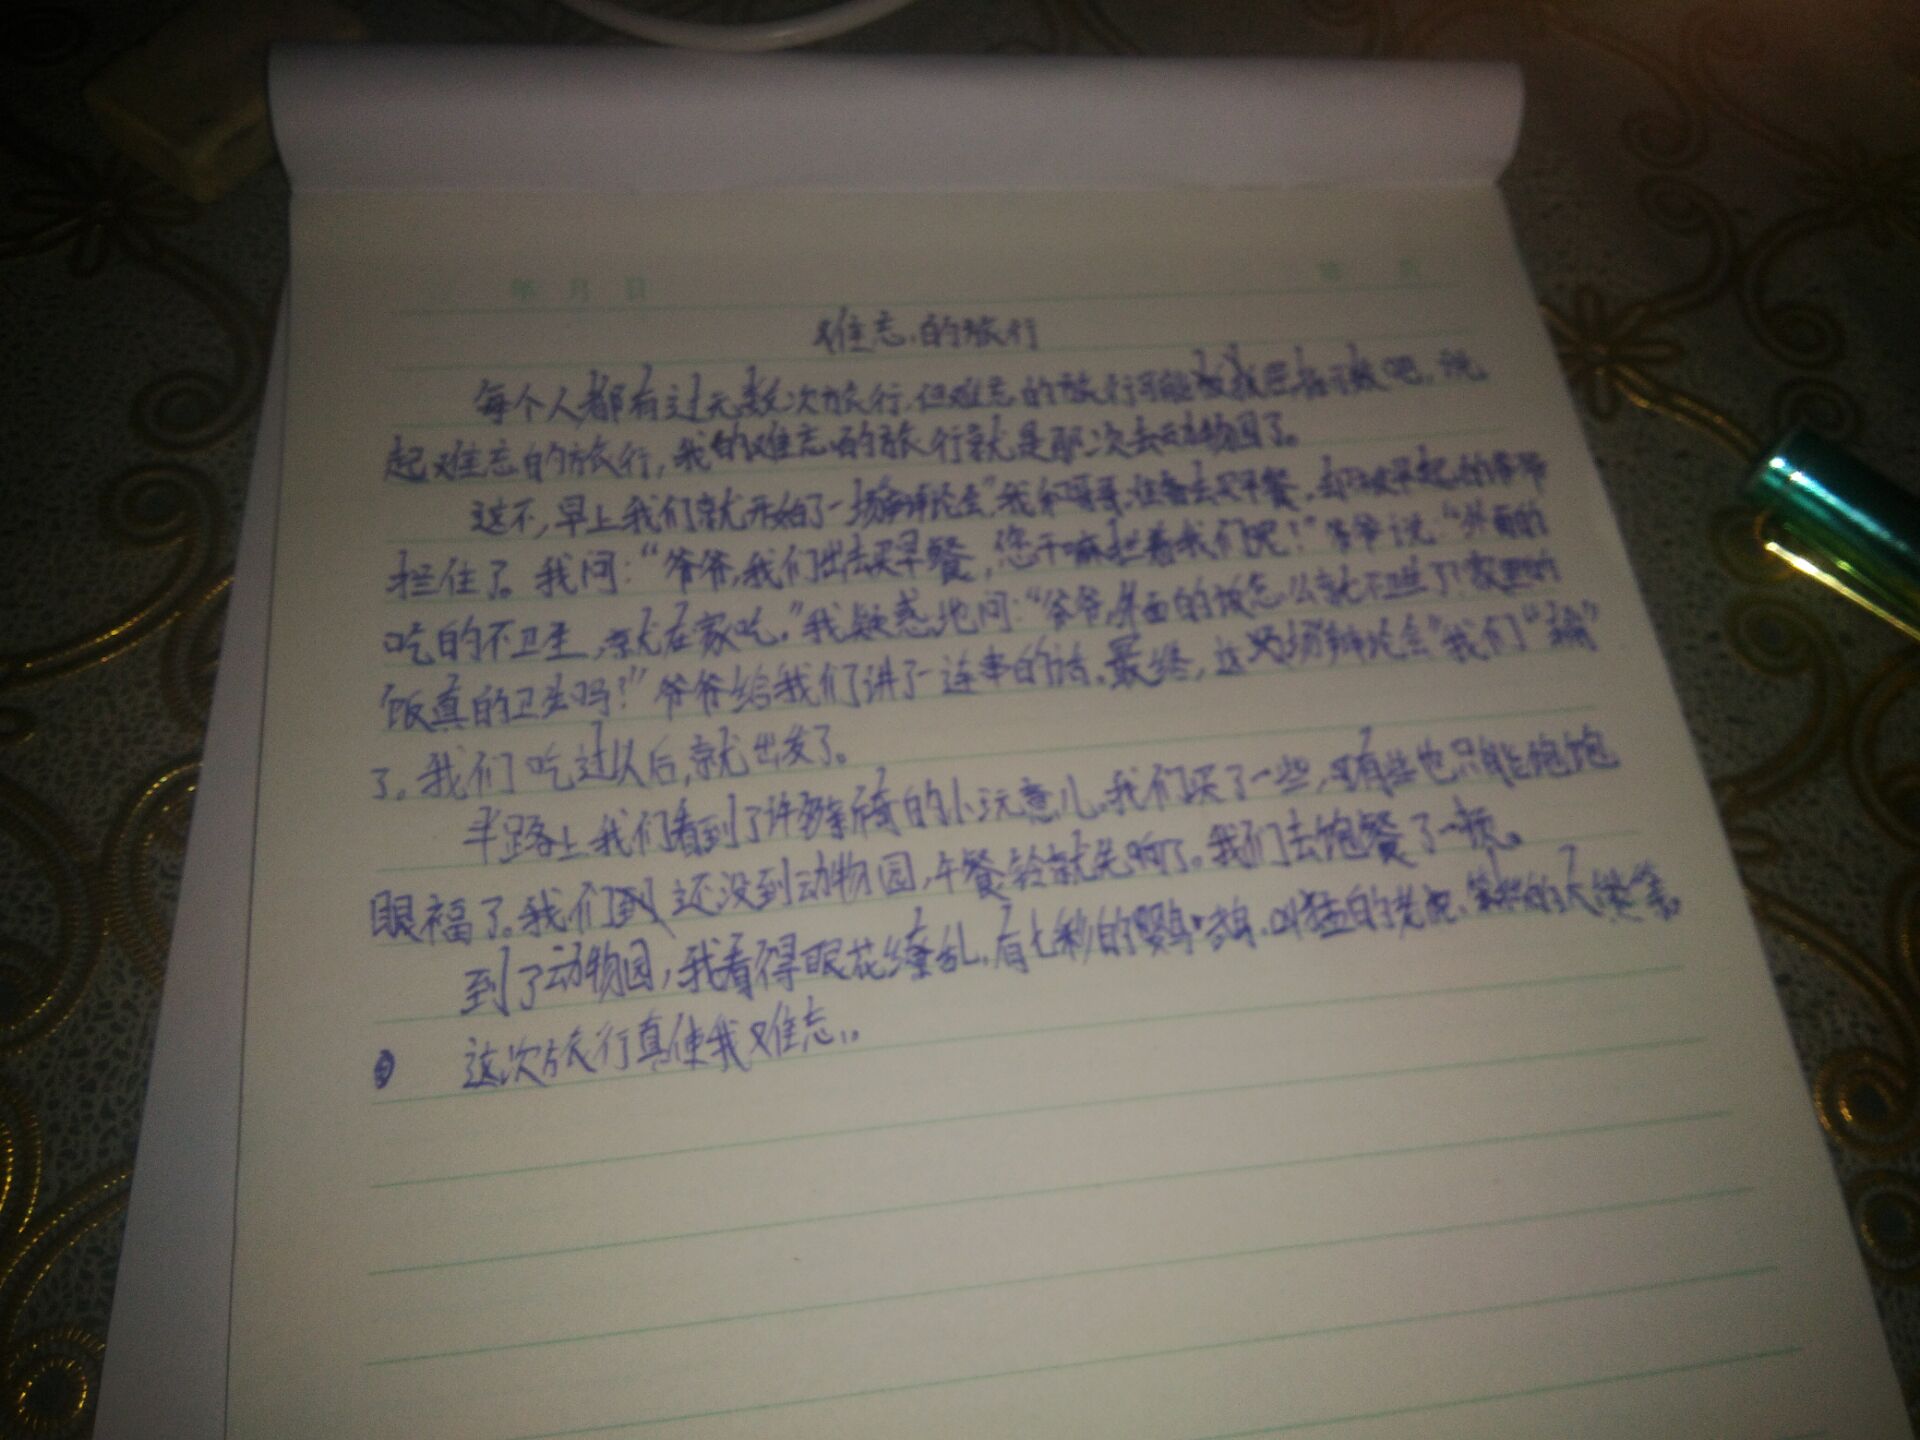 年 月 日
难忘的旅行
每个人都有过无数次旅行,但难忘的旅行可能 吧,说
起难忘的旅行,我的难忘的旅行就是那次去动物园了。
这不,早上我们就开始了一场"辩论会"我和哥哥 去买早餐,却被早起的爷爷
拦住了。我问:“爷爷,我们出去买早餐,您干嘛拦着我们呢!”爷爷说:“外面的
吃的不卫生,就在家吃。”我疑惑地问:“爷爷,外面的饭怎么就不卫生了?家里的
饭真的卫生吗?”爷爷给我们讲了一连串的话。最终,这 场"辩论会"我们“输”
了。我们吃过以后,就出发了。
半路上我们看到了许多新奇的小玩意儿。我们买了一些,有些也只能饱饱
眼福了。我们 还没到动物园,午餐铃就先响了。我们去饱餐了一顿。
到了动物园,我看得眼花缭乱。有七彩的鹦鹉、 猛的老虎、 的大熊 等。
这次旅行真使我难忘。